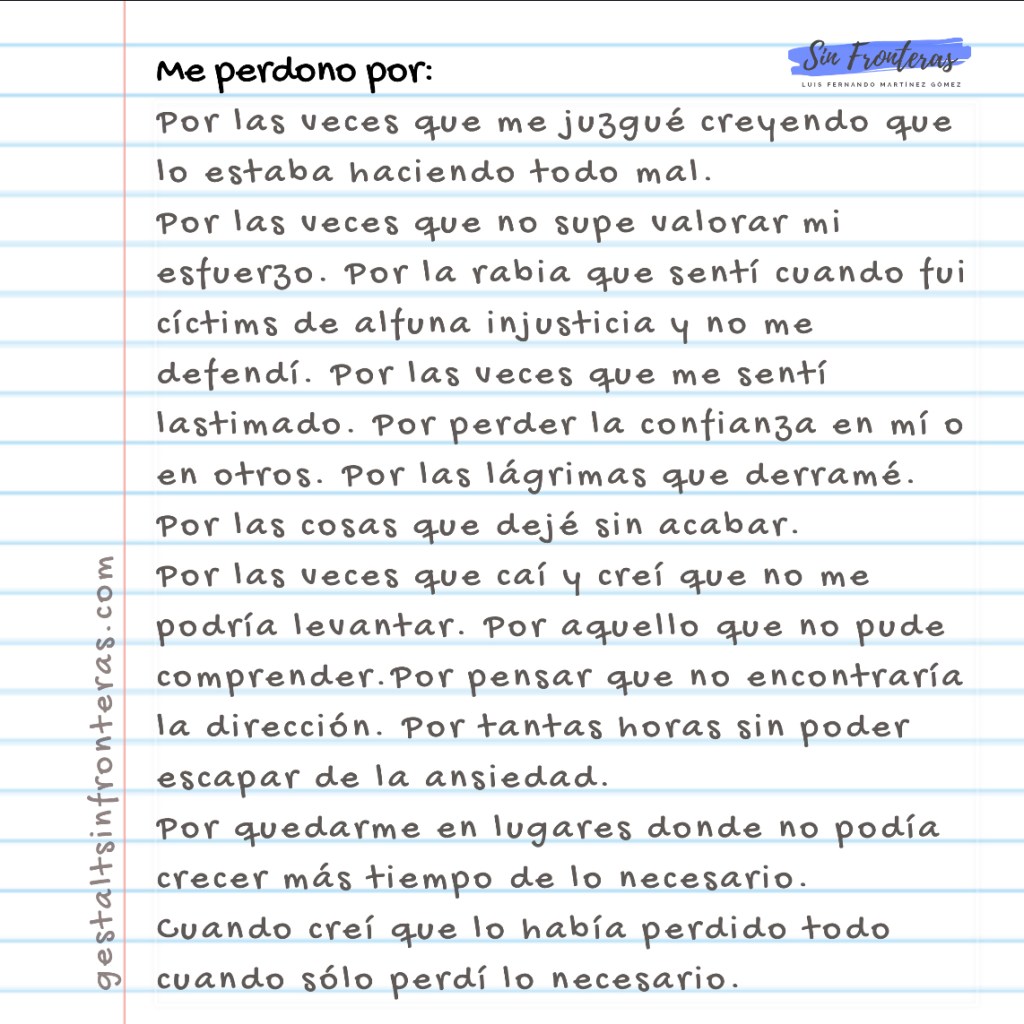 Sin Fronteras
LUIS FERNANDO MARTÍNEZ GÓMEZ
Me perdono por:
Por las veces que me juzgué creyendo que
lo estaba haciendo todo mal.
Por las veces que no supe valorar mi
esfuerzo. Por la rabia que sentí cuando fui
cíctims de alfuna injusticia y no me
defendí. Por las veces que me sentí
lastimado. Por perder la confianza en mí o
en otros. Por las lágrimas que derramé.
Por las cosas que dejé sin acabar.
Por las veces que caí y creí que no me
podría levantar. Por aquello que no pude
comprender.Por pensar que no encontraría
la dirección. Por tantas horas sin poder
escapar de la ansiedad.
Por quedarme en lugares donde no podía
crecer más tiempo de lo necesario.
Cuando creí que lo había perdido todo
cuando sólo perdí lo necesario.
gestaltsinfronteras.com